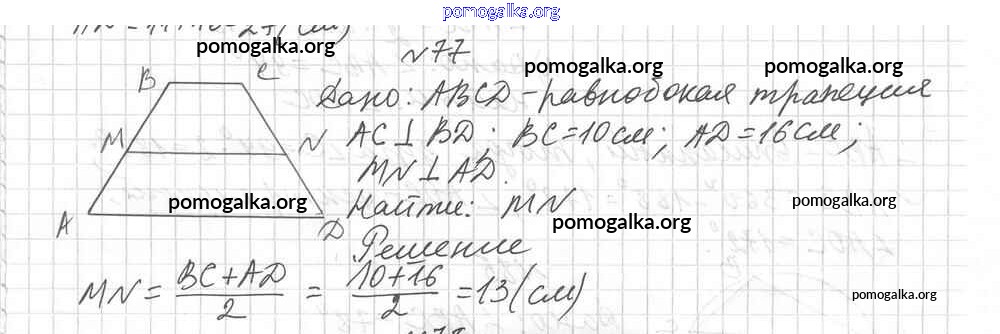 pomogalka.org
pomogalka.org
№77
pomogalka.org
pomogalka.org
B
C
Дано: ABCD - равнобокая трапеция
M
N
AC ⊥ BD; BC = 10 см; AD = 16 см;
MN ⊥ AD.
pomogalka.org
Найти: MN
pomogalka.org
pomogalka.org
A
D
Решение
MN = (BC + AD)/2 = (10 + 16)/2 = 13 (см)
pomogalka.org